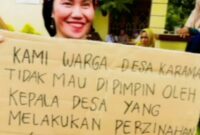 KAMI WARGA DESA KARAMA
TIDAK MAU DI PIMPIN OLEH
KEPALA DESA YANG
MELAKUKAN PERZINAHAN